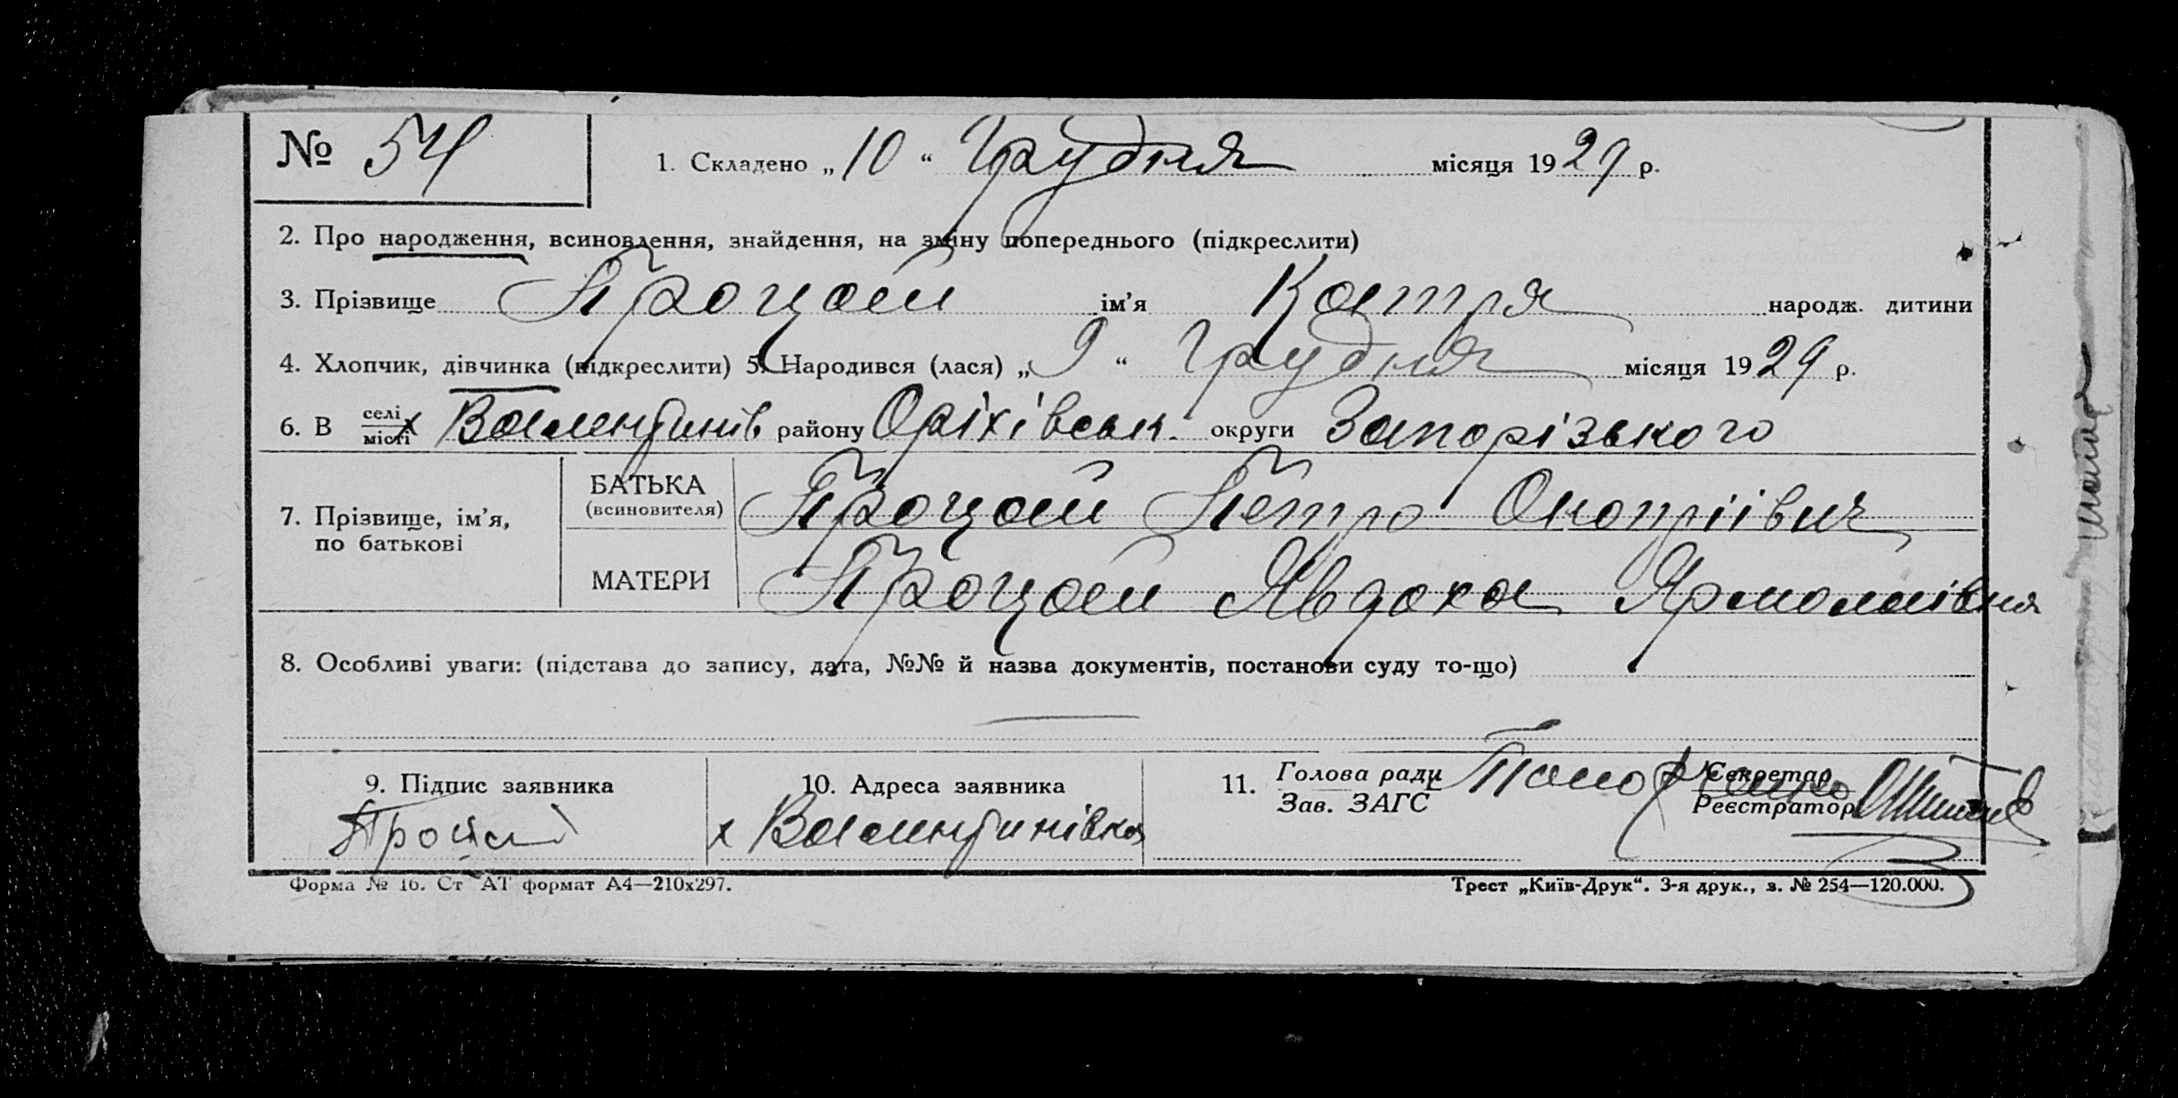 № 54 1. Складено „10“ Грудня місяця 1929 р.
2. Про народження, всиновлення, знайдення, на зміну попереднього (підкреслити)
3. Прізвище Процай ім’я Катря народж. дитини
4. Хлопчик, дівчинка (підкреслити) 5. Народився (лася) „9“ Грудня місяця 1929 р.
6. В селі місті х Валентинів району Оріхівськ. округи Запорізького
7. Прізвище, ім’я, по батькові
БАТЬКА (всиновителя) Процай Петро Онопріівич
МАТЕРИ Процай Явдоха Ярмолаівна
8. Особливі уваги: (підстава до запису, дата, №№ й назва документів, постанови суду то-що)
9. Підпис заявника 10. Адреса заявника 11. Голова ради Зав. ЗАГС Секретар Реєстратор
Процай х Валентинівка
Форма № 16. Ст АТ формат А4—210х297. Трест „Київ-Друк“. 3-я друк., з. № 254—120.000.